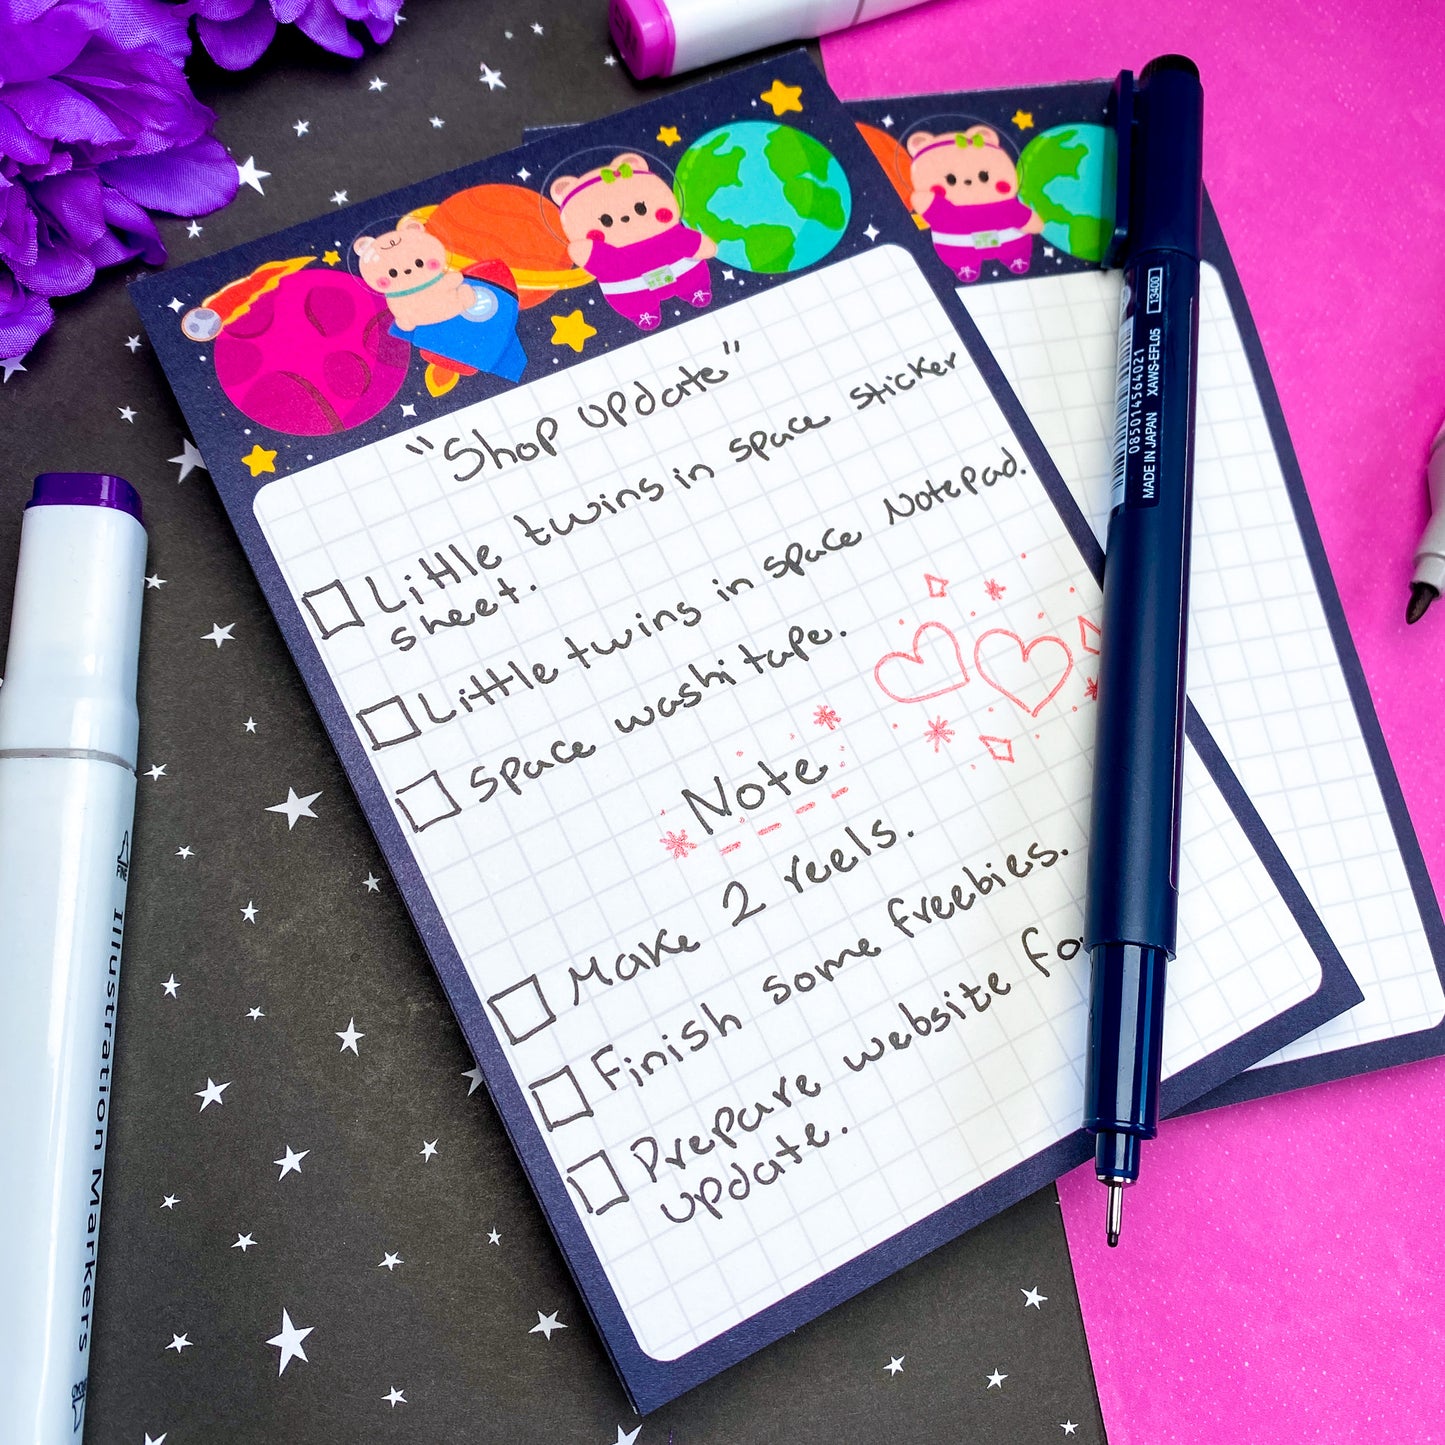 "Shop update"
Little twins in space sticker
sheet.
Little twins in space Notepad.
Space washi tape.
Note
Make 2 reels.
Finish some freebies.
Prepare website fo
update.
13400
085014564021 XAWS-EFL05
MADE IN JAPAN
FINE
Illustration Markers